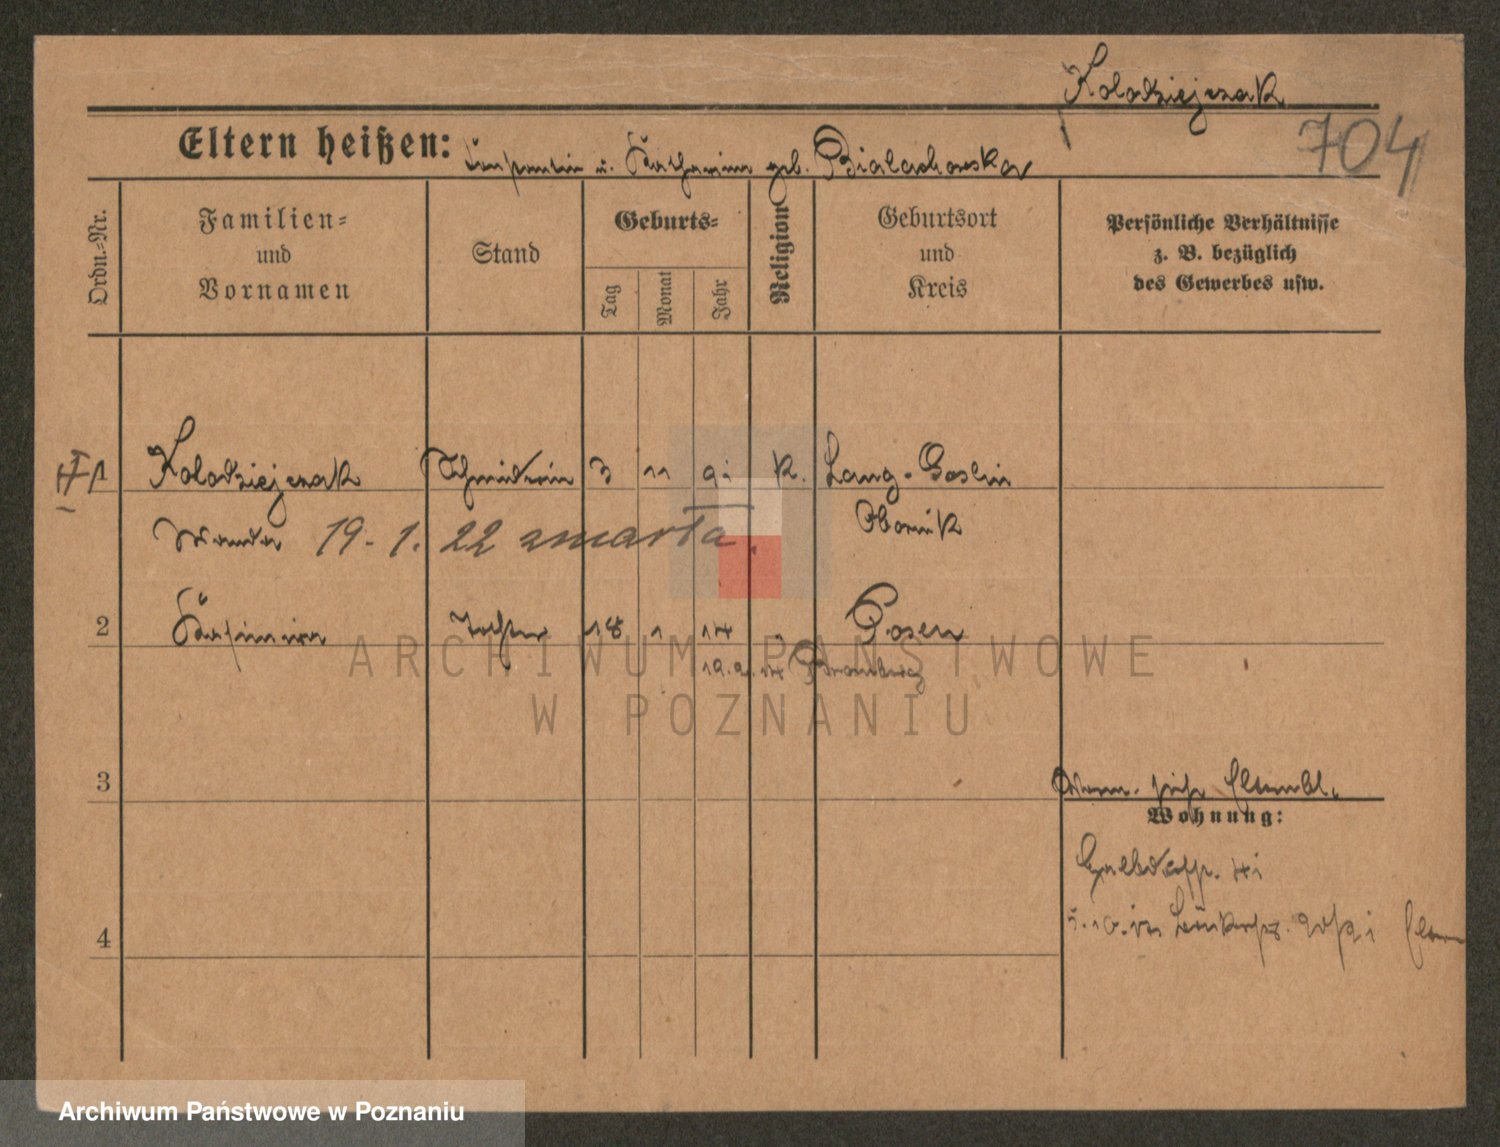 Kolodziejczak
704
Eltern heißen: Constantin u. Katharina geb. Bialachowska
Ordn.=Nr.
Familien=
und
Vornamen
Stand
Geburts=
Tag
Monat
Jahr
Religion
Geburtsort
und
Kreis
Persönliche Verhältnisse
z. B. bezüglich
des Gewerbes usw.
1 Kolodziejczak Schneiderin 3 11 91 K. Lang-Goslin
Wanda 19-1.22 zmarła. Obornik
2 Kasimira Tochter 18 1 14 Posen
Bromberg
3
Wohnung:
4
ARCHIWUM PAŃSTWOWE
W POZNANIU
Archiwum Państwowe w Poznaniu